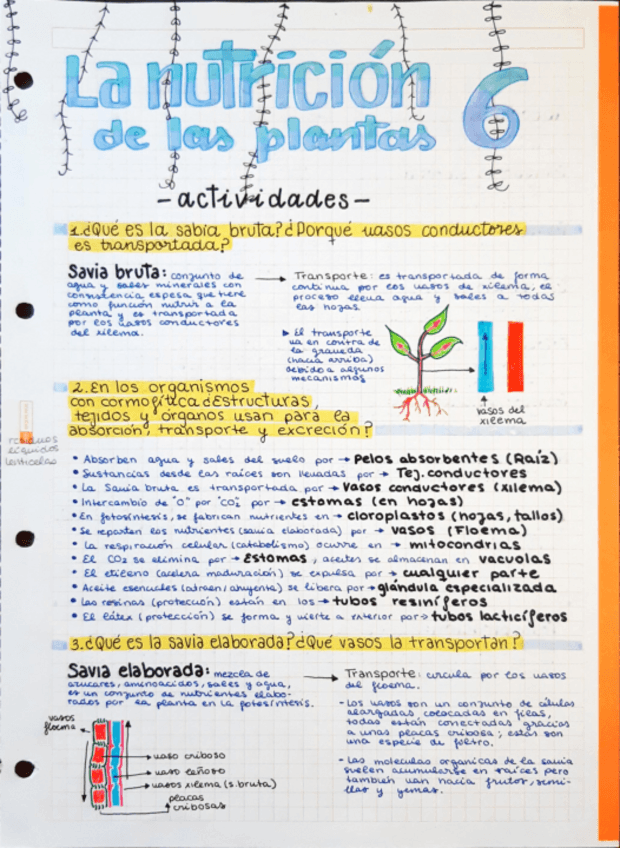 La nutrición 6
de las plantas
-actividades-
1.¿Qué es la sabia bruta?¿Porqué vasos conductores
es transportada?
Savia bruta: conjunto de
agua y sales minerales con
consistencia espesa que tiene
como función nutrir a la
planta y es transportada
por los vasos conductores
del xilema.
→ Transporte: es transportada de forma
continua por los vasos de xilema, el
proceso lleva agua y sales a todas
las hojas.
▸ El transporte
va en contra de
la gravedad
(hacia arriba)
debido a algunos
mecanismos
vasos del
xilema
2. En los organismos
con cormofítica ¿Estructuras,
tejidos y órganos usan para la
absorción, transporte y excreción?
residuos
líquidos
lenticelas
• Absorben agua y sales del suelo por → Pelos absorbentes (Raíz)
• Sustancias desde las raíces son llevadas por → Tej. conductores
• La Savia bruta es transportada por → Vasos conductores (xilema)
• Intercambio de "O" por "CO₂" por → estomas (en hojas)
• En fotosíntesis, se fabrican nutrientes en → cloroplastos (hojas, tallos)
• Se reparten los nutrientes (savia elaborada) por → vasos (Floema)
• La respiración celular (catabolismo) ocurre en → mitocondrias
• El CO₂ se elimina por → Estomas, aceites se almacenan en vacuolas
• El etileno (acelera maduración) se expulsa por → cualquier parte
• Aceite esenciales (atraen/ahuyenta) se libera por → glándula especializada
• Las resinas (protección) están en los → tubos resiníferos
• El látex (protección) se forma y vierte a exterior por → tubos lacticíferos
3.¿Qué es la savia elaborada? ¿Qué vasos la transportan?
Savia elaborada: mezcla de
azucares, aminoacidos, sales y agua,
es un conjunto de nutrientes elabo-
rados por la planta en la fotosíntesis.
→ Transporte: circula por los vasos
del floema.
- Los vasos son un conjunto de células
alargadas, colocadas en filas,
todas están conectadas gracias
a unas placas cribosa; estas son
una especie de filtro.
- Las moleculas organicas de la savia
suelen acumularse en raíces pero
tambien van hacia frutos, semi-
llas y yemas.
vasos
floema
vaso criboso
vaso leñoso
vasos xilema (s.bruta)
placas
cribosas